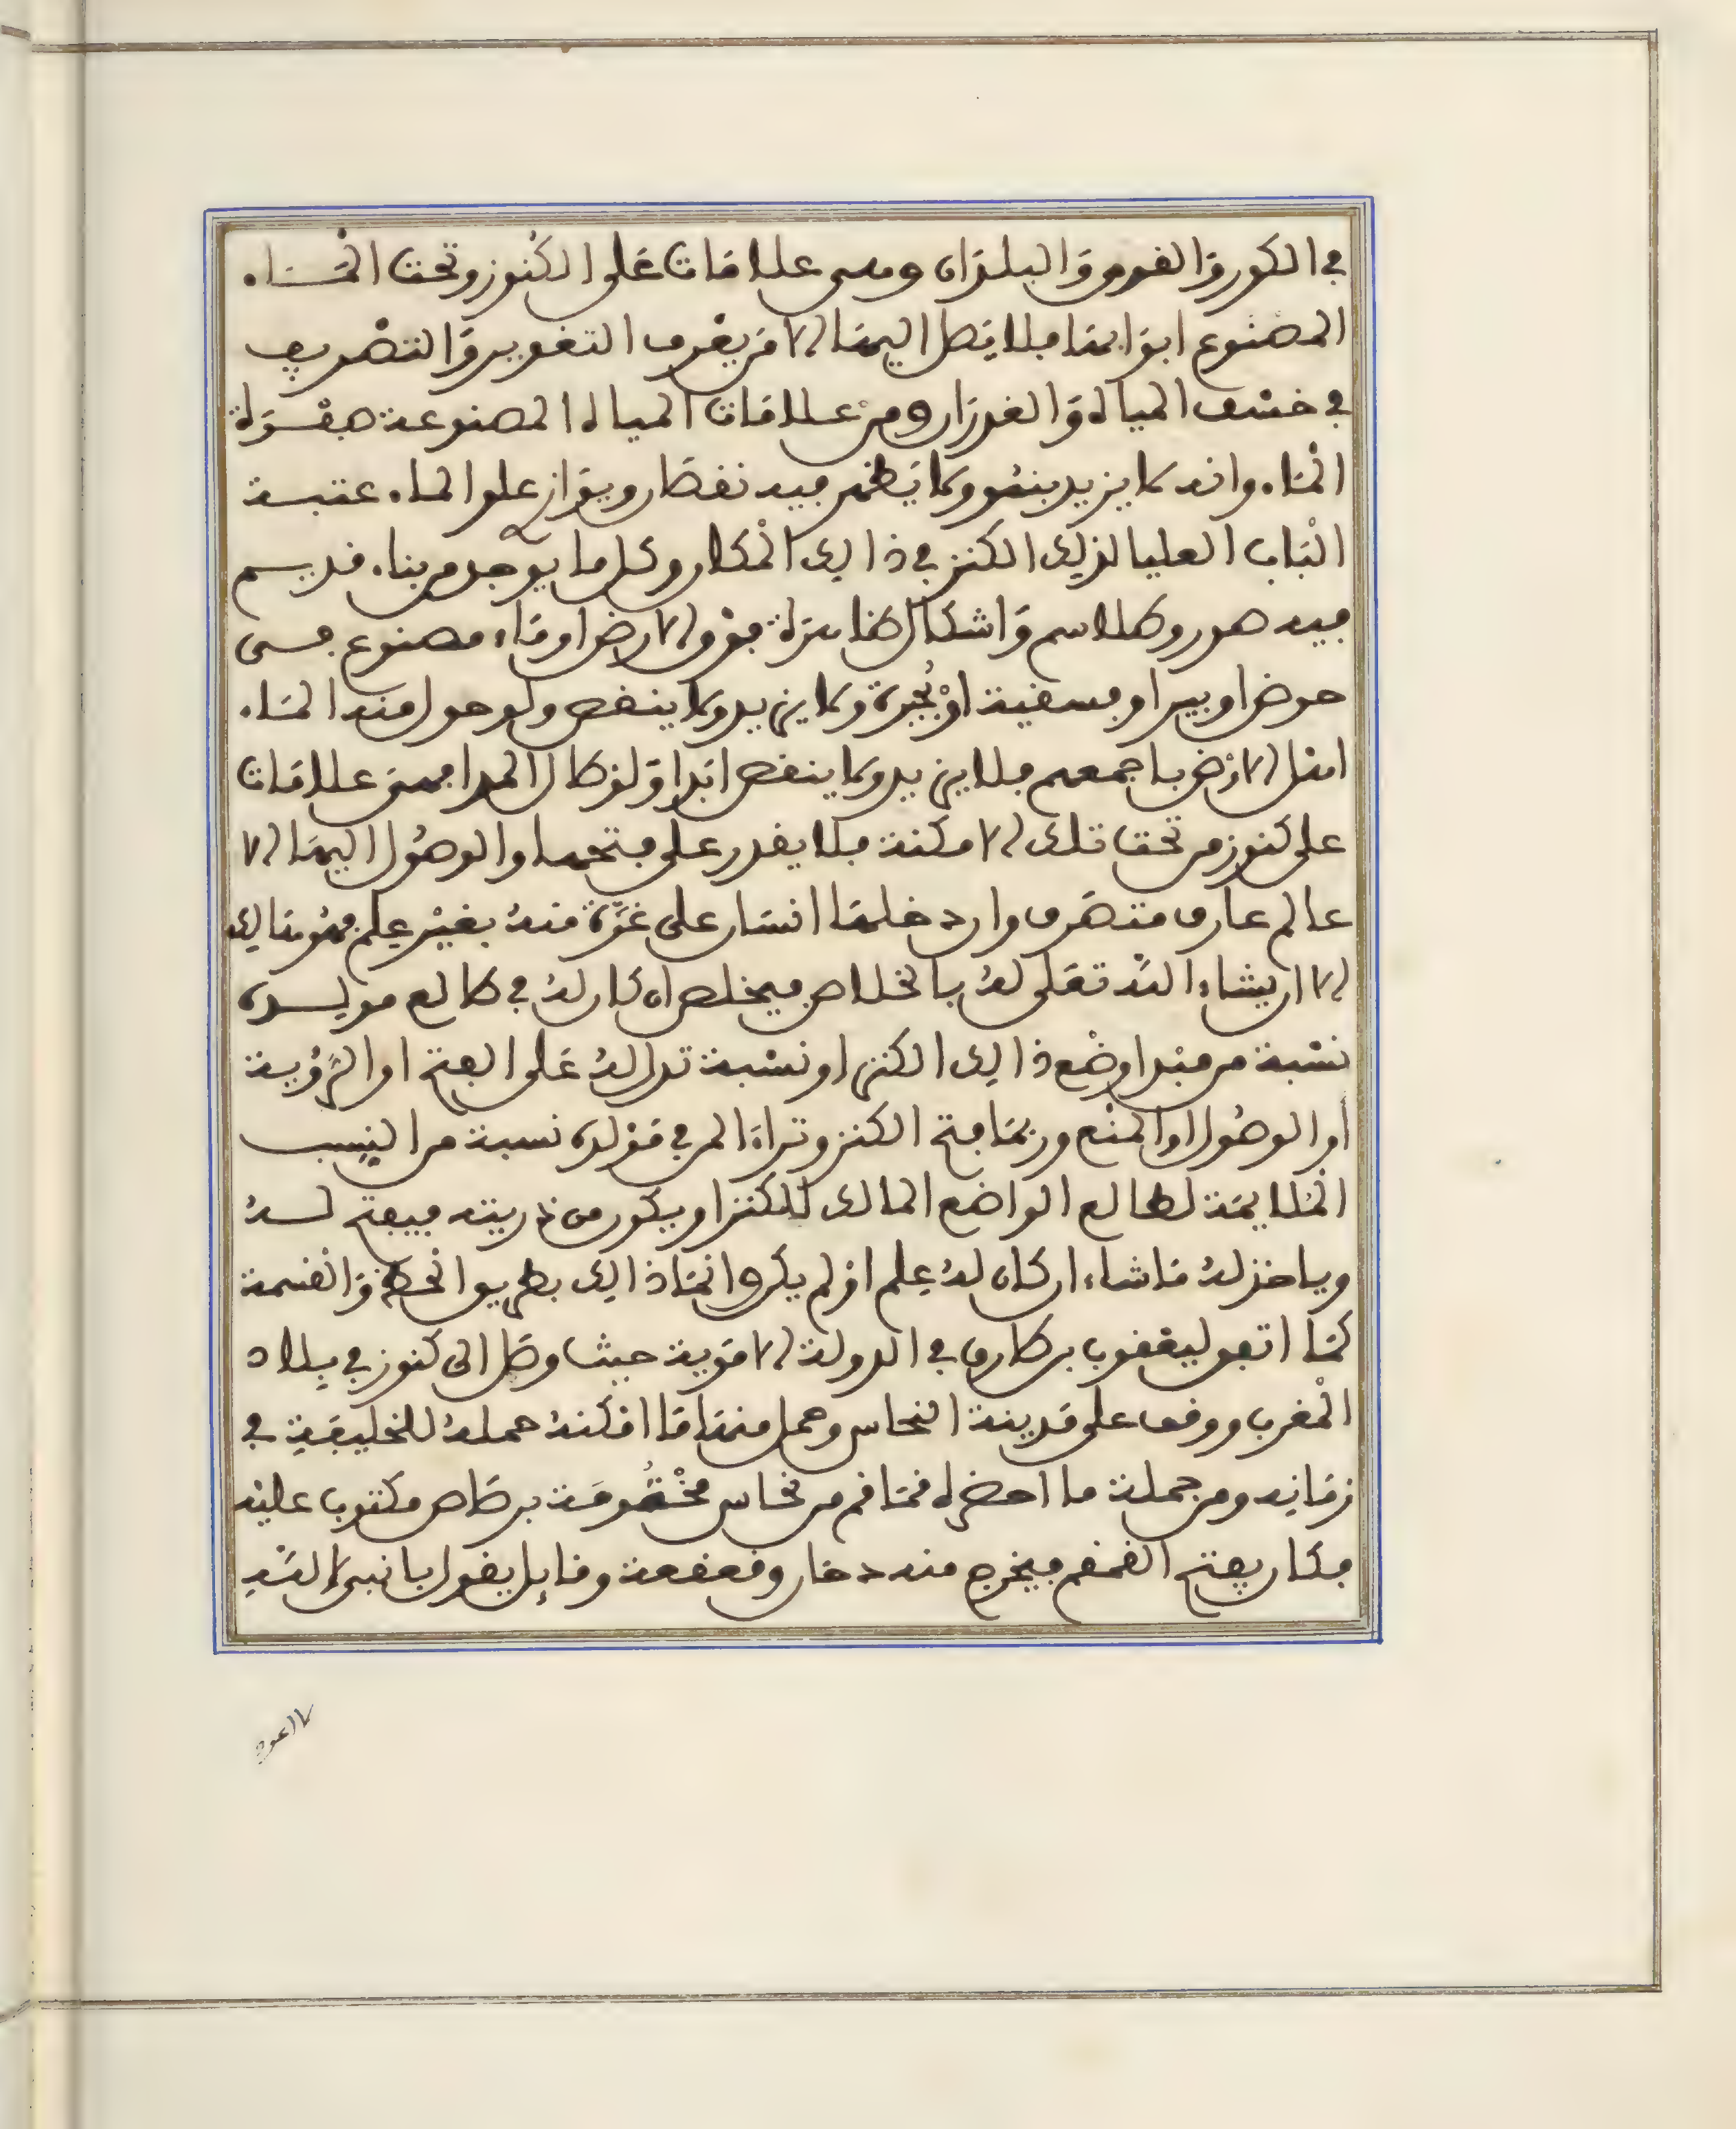 في الكور والقرى والبلدان وهي علامات على الكنوز وتحت الماء
المصنوع ابوابها فلا يصل اليها الا من يعرف التغوير والتصريف
في خسف المياه والغدران ومن علامات المياه المصنوعة صفوة
الماء وانه لا يزيد بنمو ولا يظهر فيه نقصان ويوازن علو الماء عتبة
الباب العليا لذلك الكنز في ذالك المكان وكل ما يوجد من بناء قديم
فيه صور وطلاسم واشكال ظاهرة فوق الارض او ماء مصنوع فسى
حوض او بير او فسقية او بحيرة ولا يزيد ولا ينقص ولو حول منه الماء
اهل الارض باجمعهم فلا يزيد ولا ينقص ابدا ولو كال المدا فهى علامات
على كنوز من تحت تلك الامكنة فلا يقدر على فتحها والوصول اليها الا
عالم عارف متصرف وان دخلها انسان على غرة منه بغير علم فهو هالك
الا ان يشاء الله تعلى له بالخلاص فيخلص ان كان له في طالع مولده
نسبة من مبدا وضع ذالك الكنز او نسبة تدل له على الفتح او الرؤية
او الوصول او المنع وربما فتح الكنز وتراءا لمن في مولده نسبة من النسب
الملايمة لطالع الواضع المالك للكنز او يكون من ذريته فيفتح له
وياخذ له ما شاء ان كان له علم او لم يكن وانما ذالك بطريق الحظ والقسمة
كما اتفق ليعقوب بن طارق في الدولة الاموية حيث وصل الى كنوز في بلاد
المغرب ووقف على مدينة النحاس وحمل منها ما امكنه حمله للخليفة في
زمانه ومن جملة ما احضره قماقم من نحاس مختومة برصاص مكتوب عليه
فكان يفتح القمقم فيخرج منه دخان وقعقعة وقايل يقول يا نبي الله
لا اعود